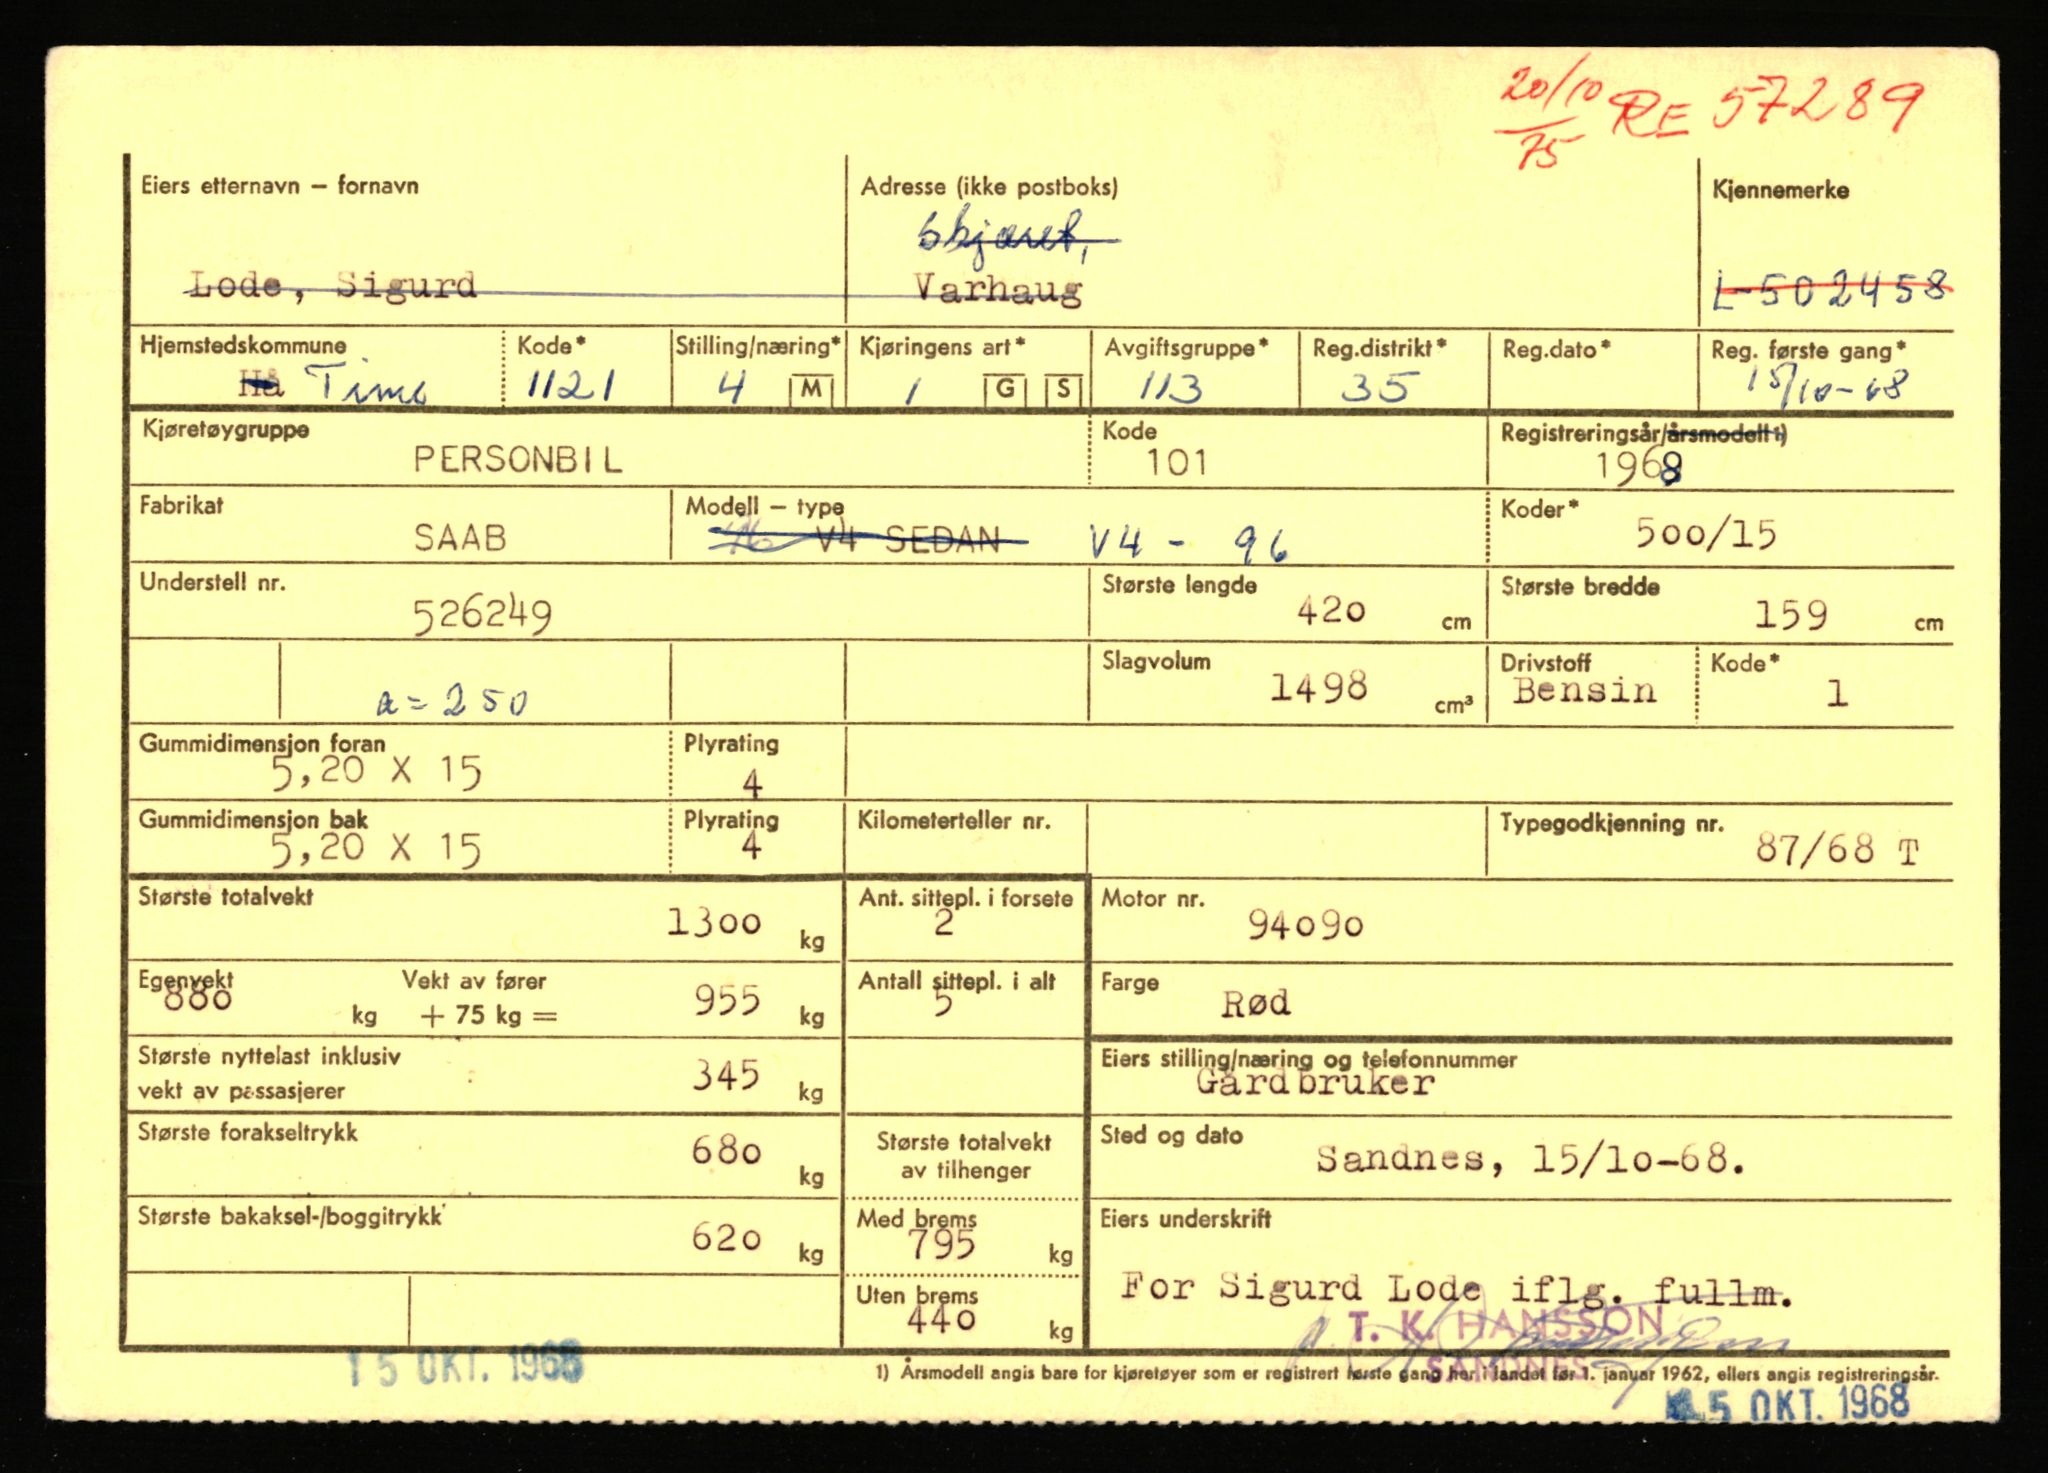 20/10 RE 57289
75
Eiers etternavn – fornavn
Adresse (ikke postboks)
Kjennemerke
Skjæret,
Lode, Sigurd
Varhaug
L-502458
Hjemstedskommune
Kode*
Stilling/næring*
Kjøringens art*
Avgiftsgruppe*
Reg.distrikt*
Reg.dato*
Reg. første gang*
Hå Time
1121
4 M
1 G S
113
35
15/10-68
Kjøretøygruppe
Kode
Registreringsår/årsmodell 1)
PERSONBIL
101
1968
Fabrikat
Modell – type
Koder*
SAAB
96 V4 SEDAN V4 - 96
500/15
Understell nr.
Største lengde
Største bredde
526249
420 cm
159 cm
Slagvolum
Drivstoff
Kode*
a = 250
1498 cm³
Bensin
1
Gummidimensjon foran
Plyrating
5,20 X 15
4
Gummidimensjon bak
Plyrating
Kilometerteller nr.
Typegodkjenning nr.
5,20 X 15
4
87/68 T
Største totalvekt
Ant. sittepl. i forsete
Motor nr.
1300 kg
2
94090
Egenvekt
Vekt av fører
Antall sittepl. i alt
Farge
880 kg + 75 kg = 955 kg
5
Rød
Største nyttelast inklusiv
vekt av passasjerer
345 kg
Eiers stilling/næring og telefonnummer
Gårdbruker
Største forakseltrykk
680 kg
Største totalvekt
av tilhenger
Sted og dato
Sandnes, 15/10-68.
Største bakaksel-/boggitrykk
620 kg
Med brems
795 kg
Eiers underskrift
Uten brems
440 kg
For Sigurd Lode iflg. fullm.
T. K. HANSSON
SANDNES
15 OKT. 1968
1) Årsmodell angis bare for kjøretøyer som er registrert første gang her i landet før 1. januar 1962, ellers angis registreringsår.
15 OKT. 1968